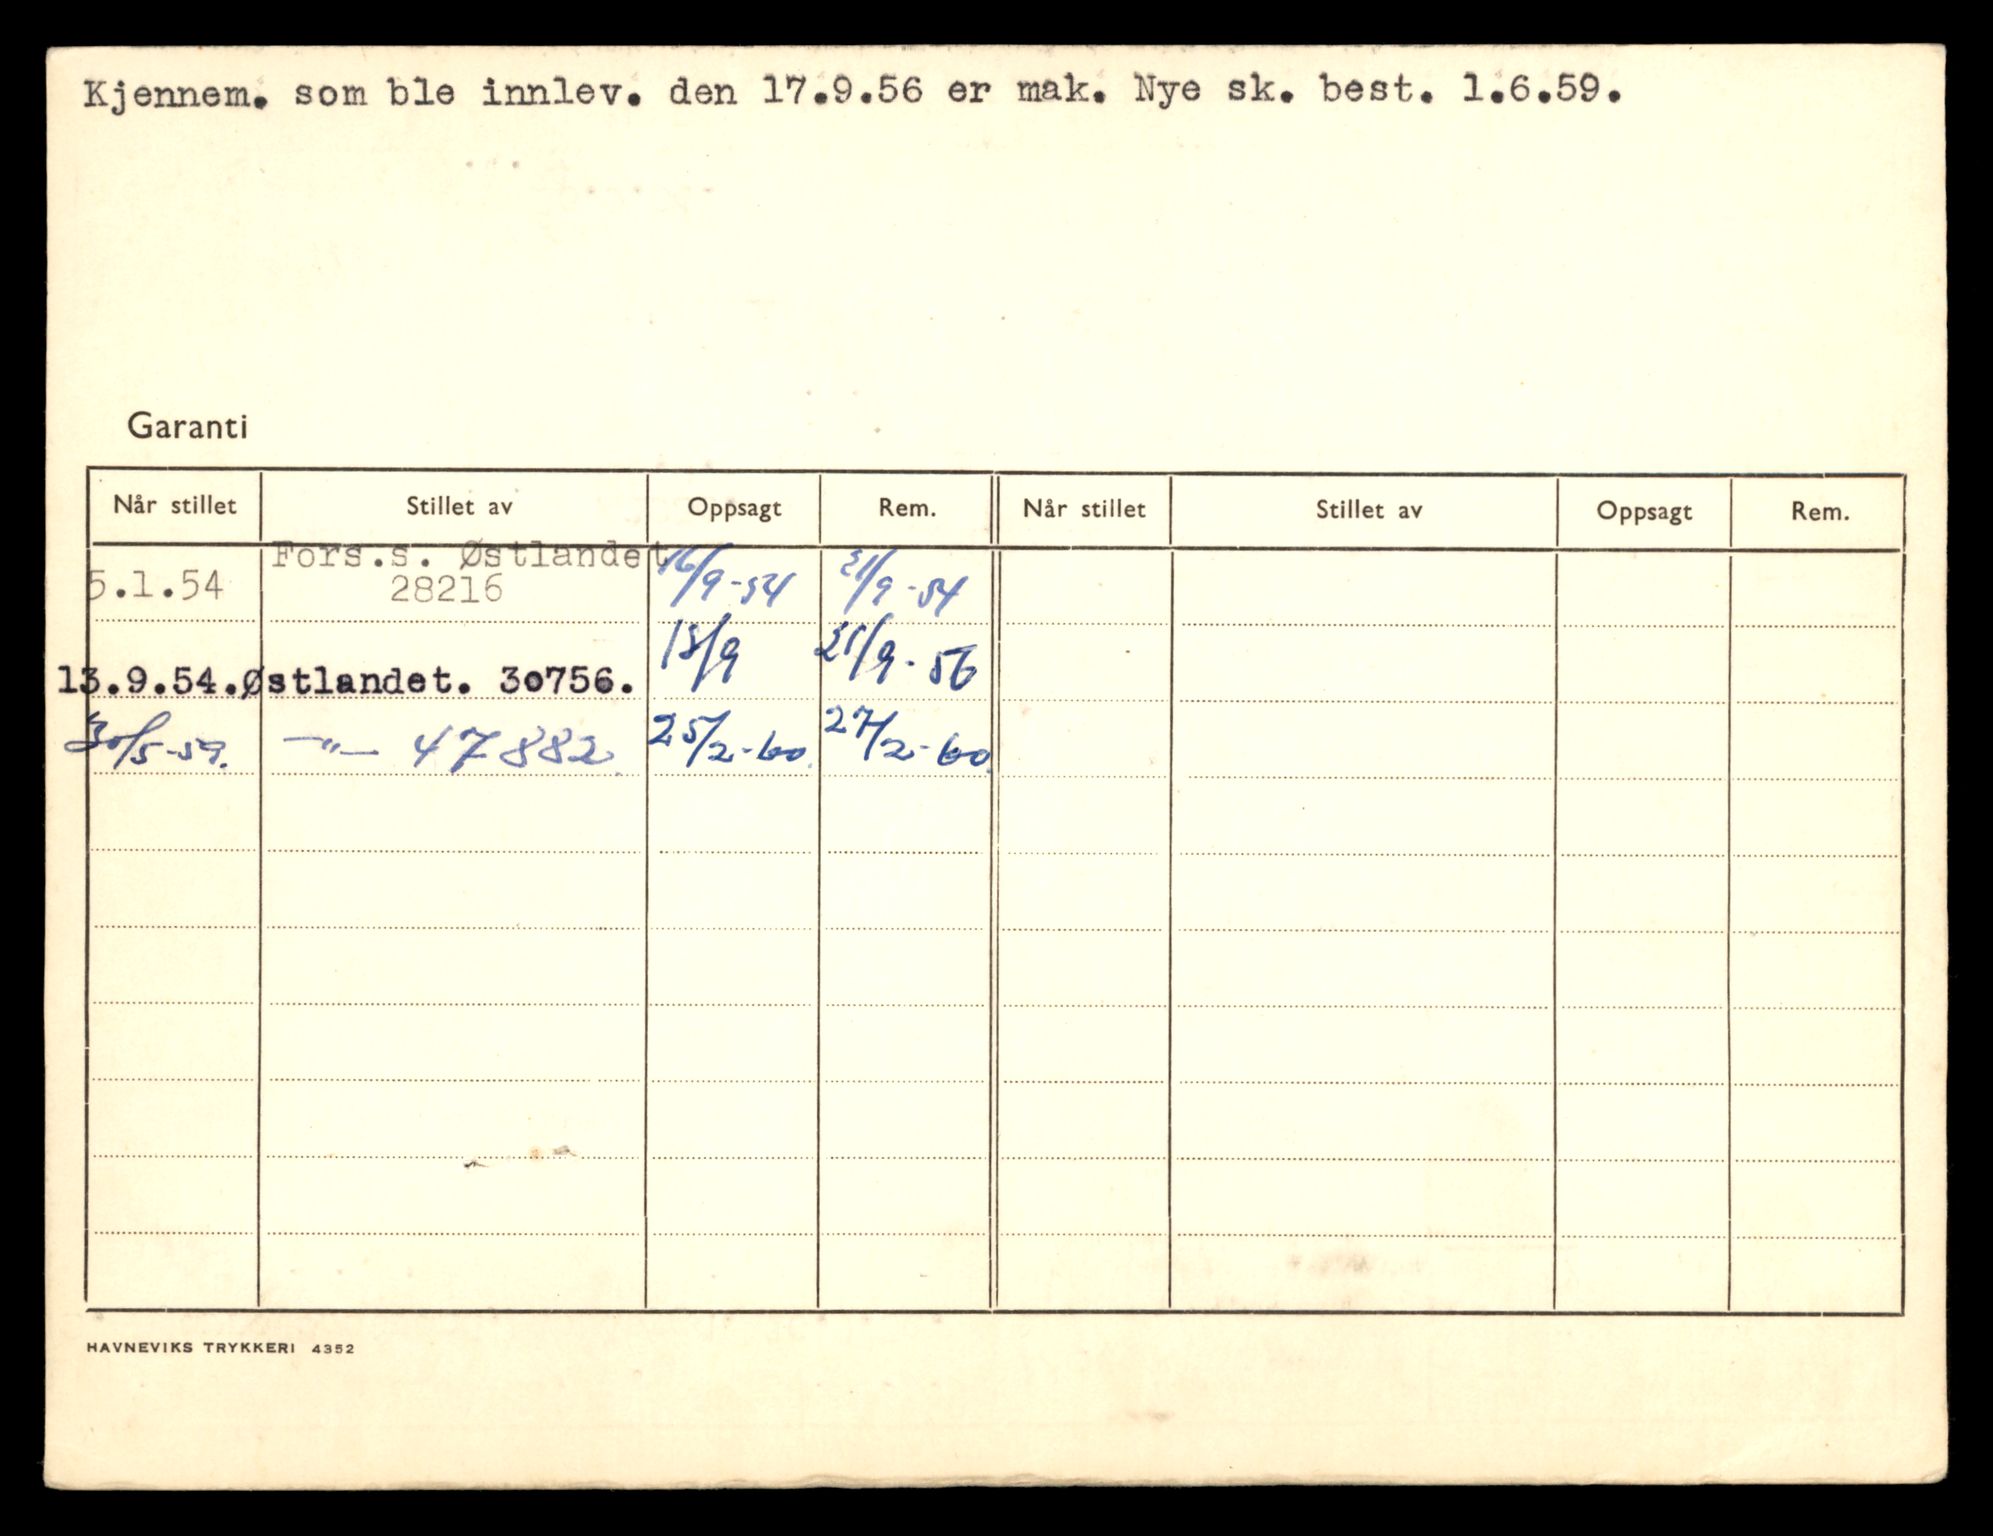 Kjennem. som ble innlev. den 17.9.56 er mak. Nye sk. best. 1.6.59.
Garanti
Når stillet Stillet av Oppsagt Rem. Når stillet Stillet av Oppsagt Rem.
Fors.s. Østlandet
5.1.54 28216 16/9-54 21/9-54
13.9.54. Østlandet. 30756. 18/9 21/9-56
30/5-59. —"— 47882. 25/2-60. 27/2-60.
HAVNEVIKS TRYKKERI 4352